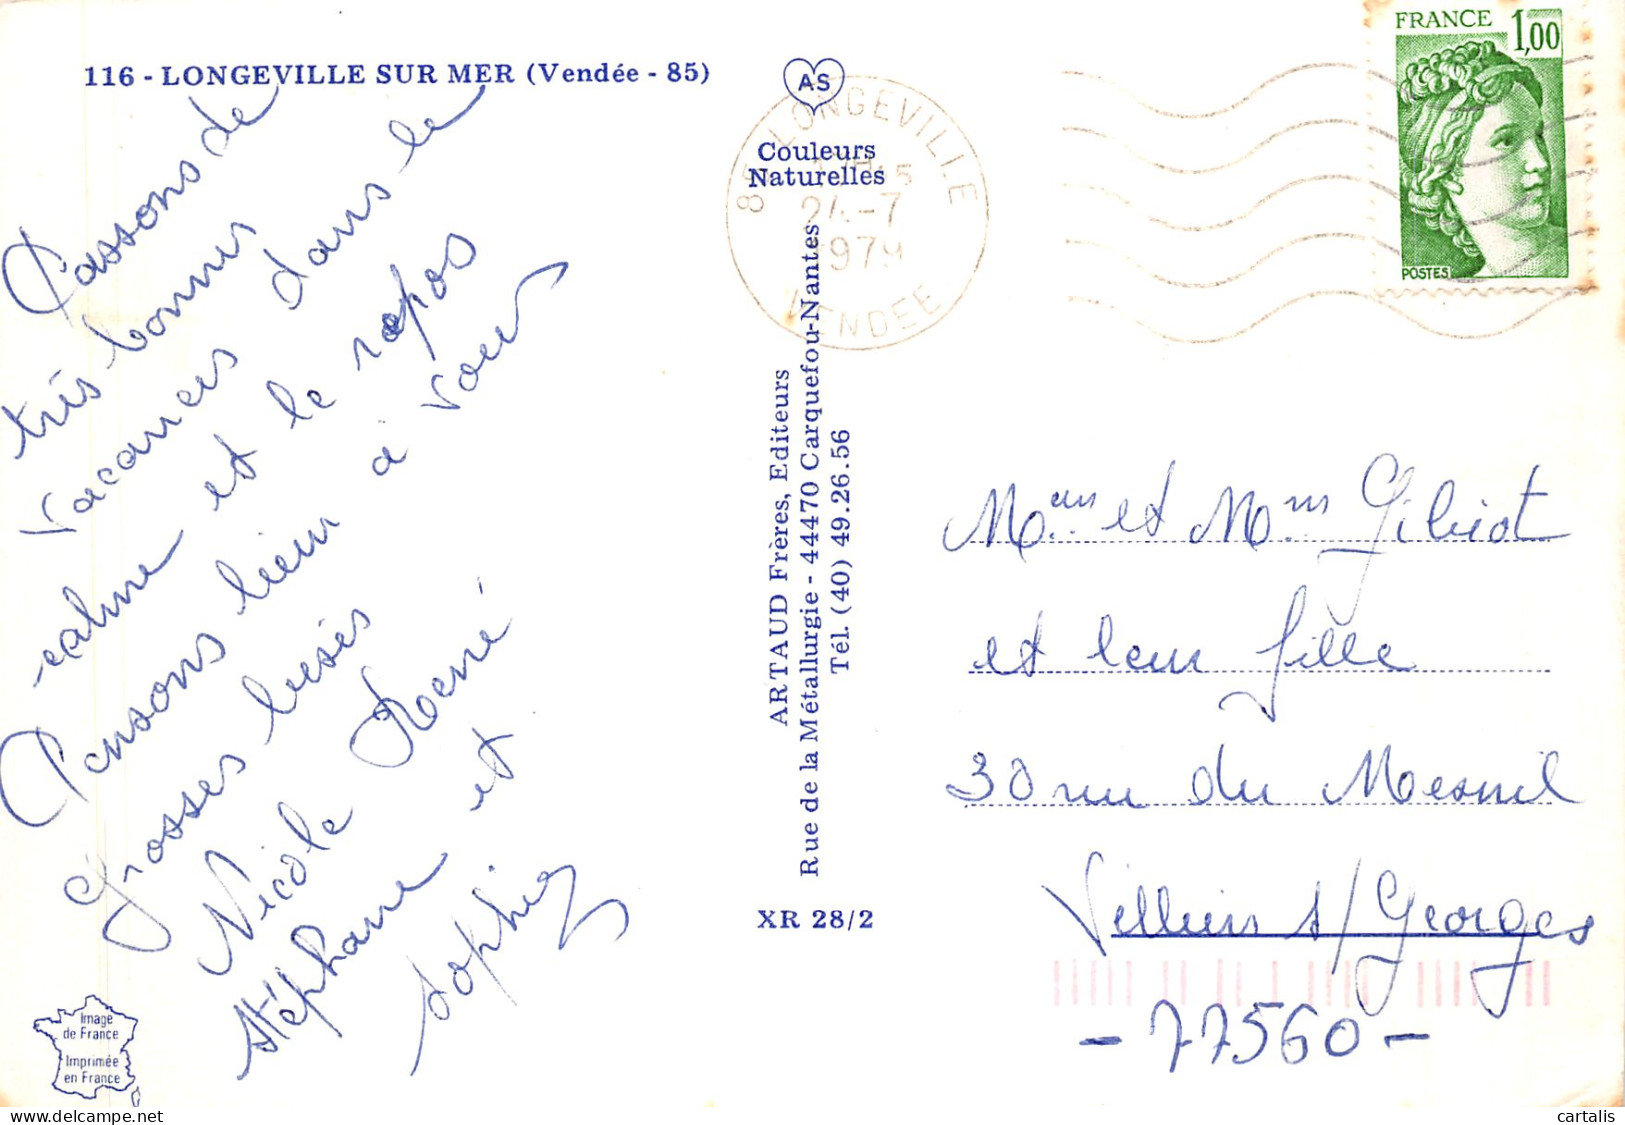 116 - LONGEVILLE SUR MER (Vendée - 85)
Passons de
très bonnes
vacances dans le
calme et le repos
Pensons bien à vous
Grosses bises
Nicole René
Stéphane et
Sophie
Image
de France
Imprimée
en France
AS
Couleurs
Naturelles
ARTAUD Frères, Editeurs
Rue de la Métallurgie - 44470 Carquefou-Nantes
Tél. (40) 49.26.56
XR 28/2
85 LONGEVILLE
24-7
1979
VENDEE
FRANCE 1,00
POSTES
et leur fille
30 rue du Mesnil
Villiers s/Georges
- 77560 -
cartalis